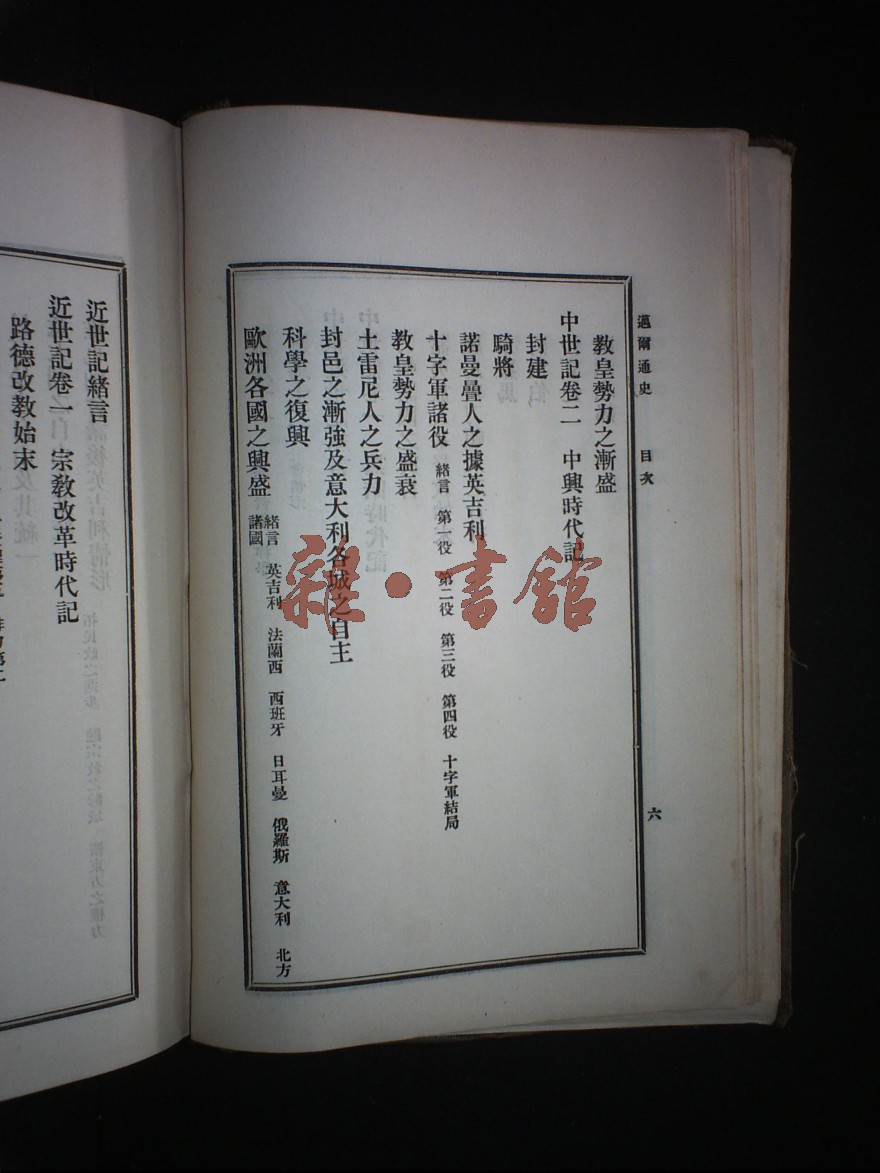 邁爾通史 目次 六
教皇勢力之漸盛
中世記卷二 中興時代記
封建
騎將
諾曼疊人之據英吉利
十字軍諸役 緒言 第一役 第二役 第三役 第四役 十字軍結局
教皇勢力之盛衰
土雷尼人之兵力
封邑之漸強及意大利各城之自主
科學之復興
歐洲各國之興盛 緒言 英吉利 法蘭西 西班牙 日耳曼 俄羅斯 意大利 北方諸國
近世記緒言
近世記卷一 宗教改革時代記
路德改教始末
雜·書館